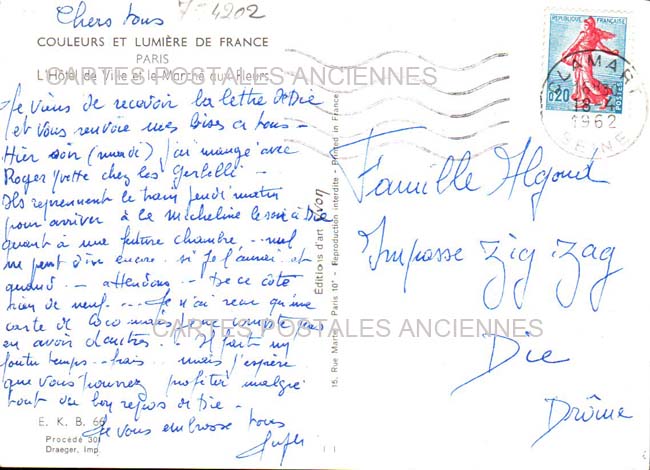 Chers tous
7-4202
COULEURS ET LUMIÈRE DE FRANCE
PARIS
L'Hôtel de Ville et le Marché aux Fleurs
CARTES POSTALES ANCIENNES
Je viens de recevoir la lettre de Die
et vous renvoie mes bises à tous -
Hier soir (mardi) j'ai mangé avec
Roger Yvette chez les Gerlelli -
Ils reprennent le train jeudi matin
pour arriver à le micheline le soir à Die
quant à une future chambre... nul
ne peut dire encore si je l'aurai et
quand - attendons - De ce côté
rien de neuf... Je n'ai reçu qu'une
carte de Coco mais
en avoir d'autres - Il fait un
foutu temps - frais mais j'espère
que vous pourrez profiter malgré
tout du bon repos à Die -
Je vous embrasse tous
E. K. B. 66
Procédé 301
Draeger, Imp.
Éditions d'art Yvon
15, Rue Martel, Paris 10° - Reproduction interdite - Printed in France
RÉPUBLIQUE FRANÇAISE
0,20
POSTES
CLAMART
18-4
1962
SEINE
Famille Algoud
Impasse Zig Zag
CARTES POSTALES ANCIENNES
Die
Drôme